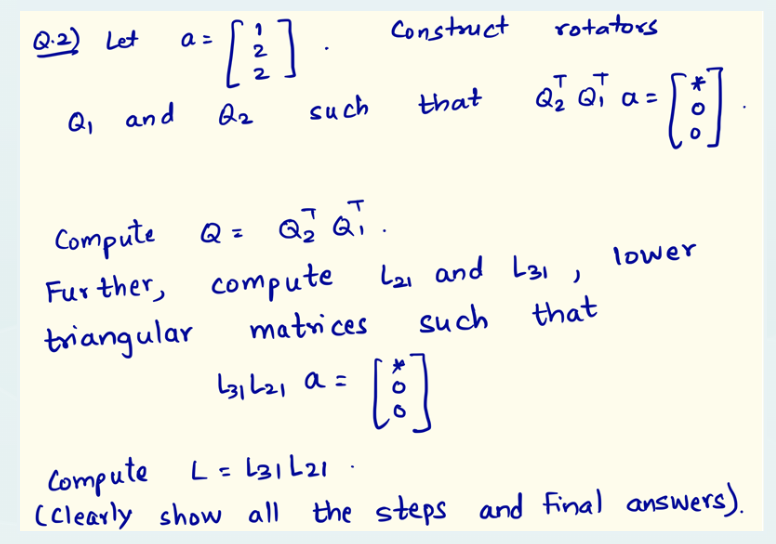 Q.2) Let a = [1 2 2] . Construct rotators
Q₁ and Q₂ such that Q₂ᵀ Q₁ᵀ a = [* 0 0] .
Compute Q = Q₂ᵀ Q₁ᵀ .
Further, compute L₂₁ and L₃₁ , lower
triangular matrices such that
L₃₁ L₂₁ a = [* 0 0]
Compute L = L₃₁ L₂₁ .
(Clearly show all the steps and final answers).